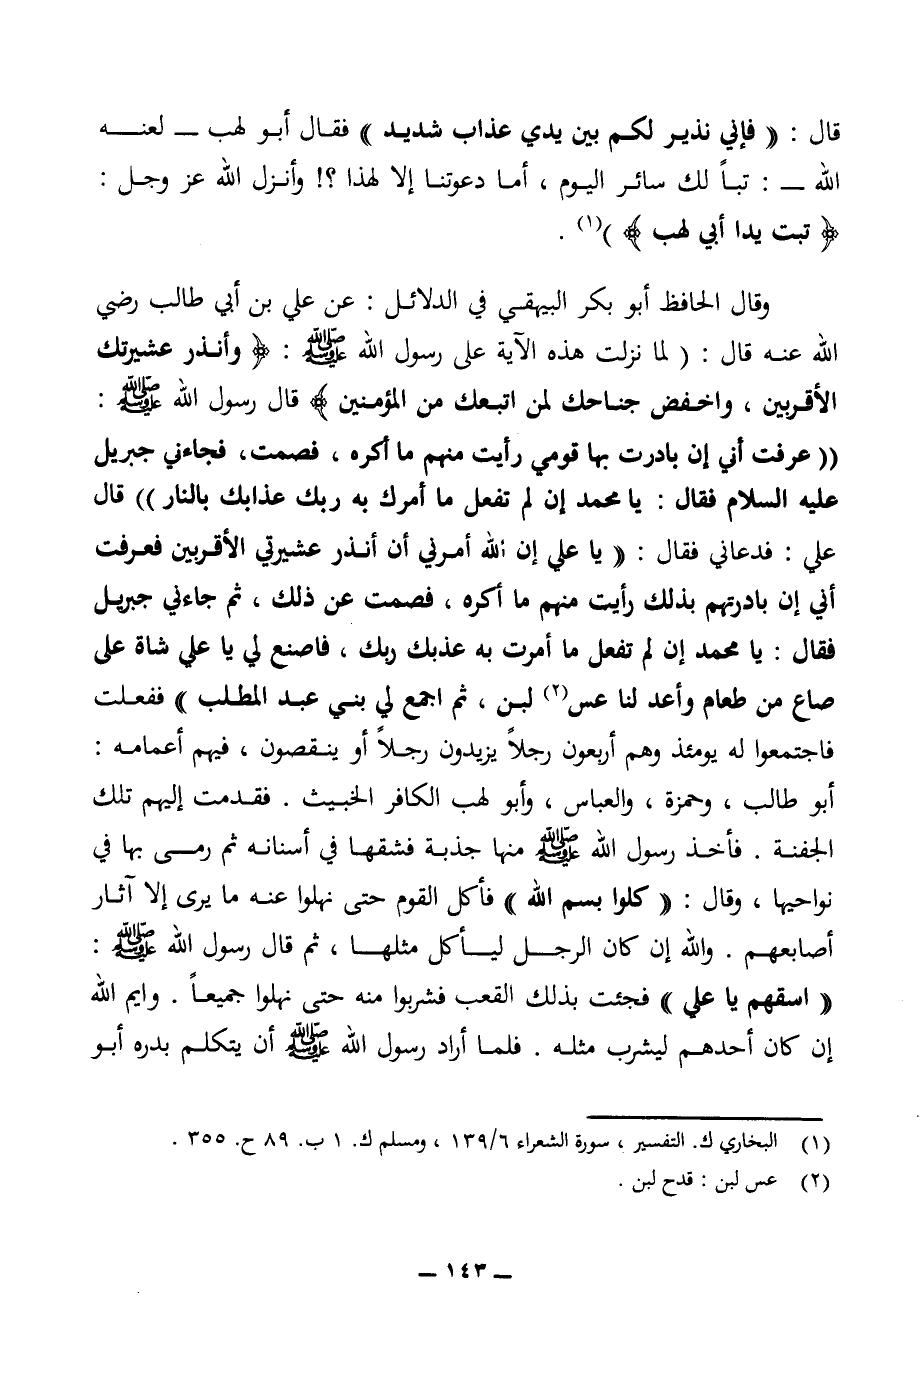 قال : « فإني نذير لكم بين يدي عذاب شديد » فقال أبو لهب ــ لعنه
الله ــ : تباً لك سائر اليوم ، أما دعوتنا إلا لهذا ؟! وأنزل الله عز وجل :
﴿ تبت يدا أبي لهب ﴾ )(١) .
وقال الحافظ أبو بكر البيهقي في الدلائل : عن علي بن أبي طالب رضي
الله عنه قال : ( لما نزلت هذه الآية على رسول الله ﷺ : ﴿ وأنذر عشيرتك
الأقربين ، واخفض جناحك لمن اتبعك من المؤمنين ﴾ قال رسول الله ﷺ :
(( عرفت أني إن بادرت بها قومي رأيت منهم ما أكره ، فصمت، فجاءني جبريل
عليه السلام فقال : يا محمد إن لم تفعل ما أمرك به ربك عذابك بالنار )) قال
علي : فدعاني فقال : « يا علي إن الله أمرني أن أنذر عشيرتي الأقربين فعرفت
أني إن بادرتهم بذلك رأيت منهم ما أكره ، فصمت عن ذلك ، ثم جاءني جبريل
فقال : يا محمد إن لم تفعل ما أمرت به عذبك ربك ، فاصنع لي يا علي شاة على
صاع من طعام وأعد لنا عس(٢) لبن ، ثم اجمع لي بني عبد المطلب » ففعلت
فاجتمعوا له يومئذ وهم أربعون رجلاً يزيدون رجلاً أو ينقصون ، فيهم أعمامه :
أبو طالب ، وحمزة ، والعباس ، وأبو لهب الكافر الخبيث . فقدمت إليهم تلك
الجفنة . فأخذ رسول الله ﷺ منها جذبة فشقها في أسنانه ثم رمى بها في
نواحيها ، وقال : « كلوا بسم الله » فأكل القوم حتى نهلوا عنه ما يرى إلا آثار
أصابعهم . والله إن كان الرجل ليأكل مثلها ، ثم قال رسول الله ﷺ :
« اسقهم يا علي » فجئت بذلك القعب فشربوا منه حتى نهلوا جميعاً . وايم الله
إن كان أحدهم ليشرب مثله . فلما أراد رسول الله ﷺ أن يتكلم بدره أبو
(١) البخاري ك. التفسير ، سورة الشعراء ١٣٩/٦ ، ومسلم ك. ١ ب. ٨٩ ح. ٣٥٥ .
(٢) عس لبن : قدح لبن .
ــ ١٤٣ ــ